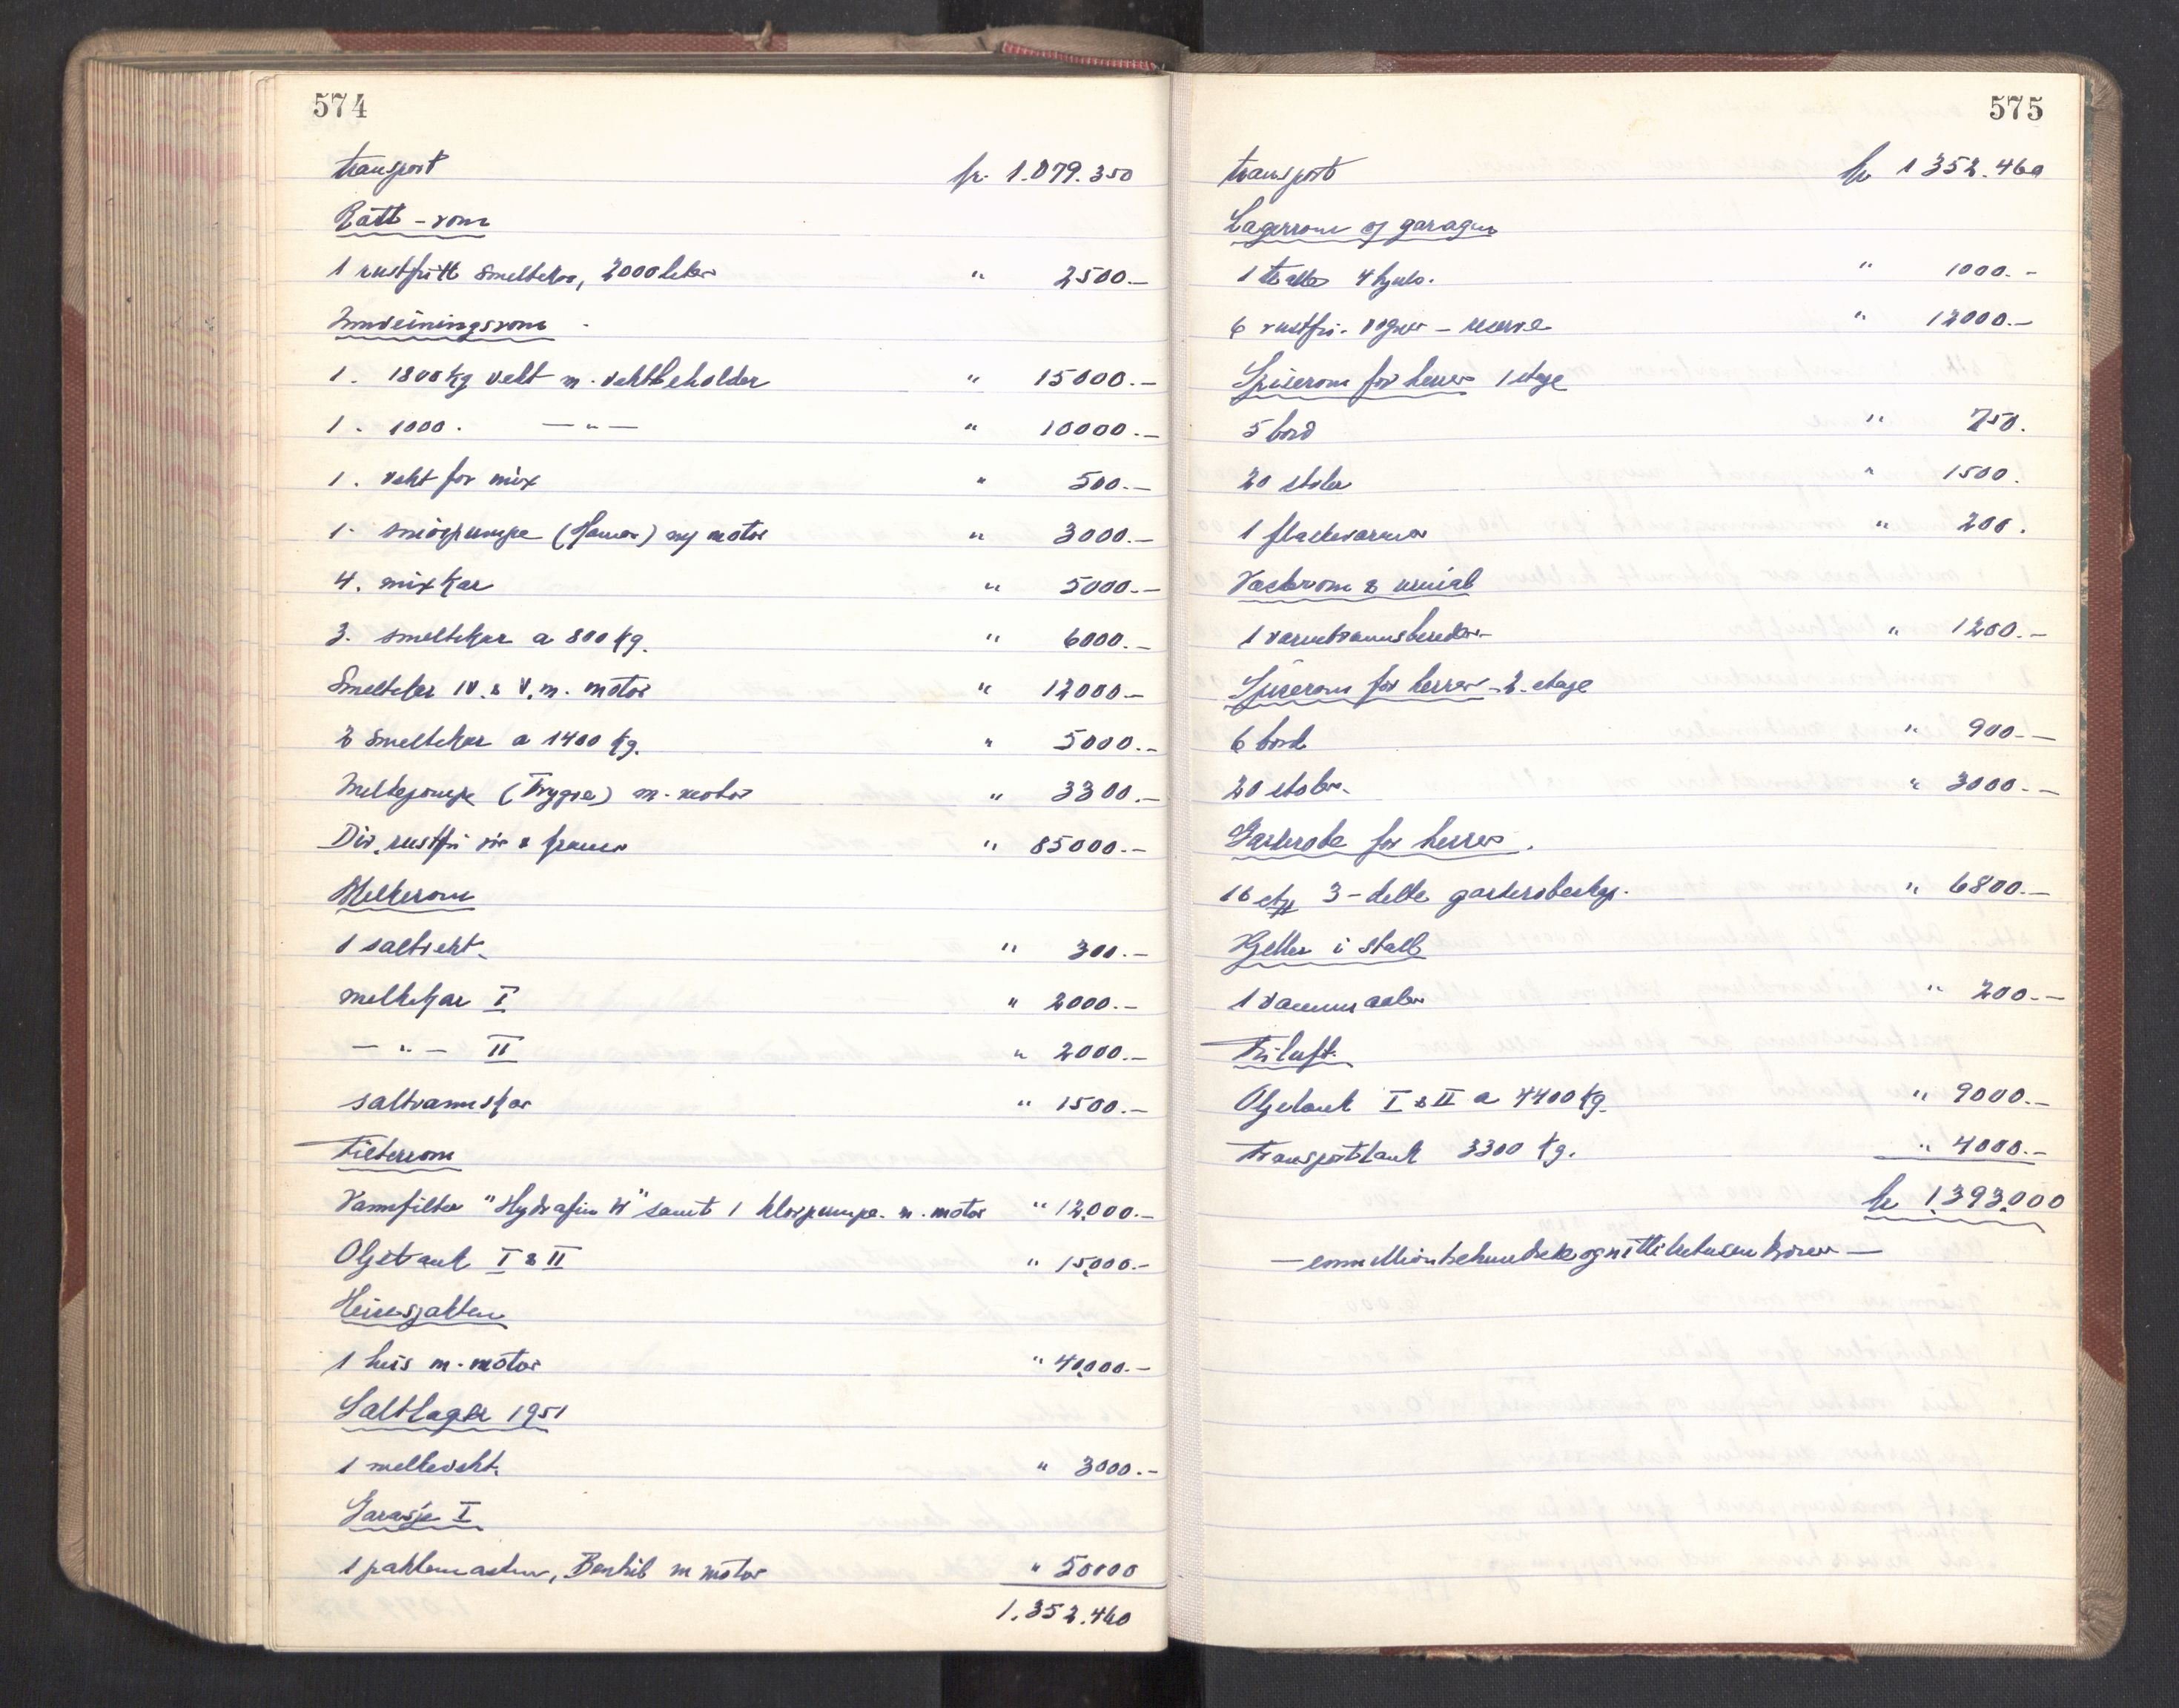 574
transport kr. 1.079.350
Rått-rom
1 rustfritt smeltekar, 2000 liter " 2500.-
Innveiningsrom
1. 1800 kg vekt m. vektbeholder " 15000.-
1. 1000. - " - " 10000.-
1. vekt for mix " 500.-
1. smörpumpe (Hamar) m/ motor " 3000.-
4. mixkar " 5000.-
3. smeltekar a 800 kg. " 6000.-
Smeltekar IV. & V. m. motor " 12000.-
2 Smeltekar a 1400 kg. " 5000.-
Melkepumpe (Trygve) m. motor " 3300.-
Div. rustfri rör & kraner " 85000.-
Melkerom
1 saltvekt. " 300.-
melkekar I " 2000.-
- " - II " 2000.-
saltvannskar " 1500.-
Filterrom
Vannfilter "Hydrafin W" samt 1 klorpumpe m. motor " 12,000.-
Oljetank I & II " 15,000.-
Heissjakten
1 heis m. motor " 40,000.-
Saltlager 1951
1 melkevekt. " 3000.-
Garasje I
1 pakkemaskin, Benhil m motor " 50000
1.352.460
575
transport kr 1352.460
Lagerrom og garager
1 tralle 4 hjuls. " 1000.-
6 rustfri. vogner - reserve " 12000.-
Spiserom for herrer 1 etage
5 bord " 750.
20 stoler " 1500.
1 flaskevarmer " 200.
Vaskerom & urinal
1 varmtvannsbereder " 1200.-
Spiserom for herrer - 2. etage
6 bord " 900.-
20 stoler. " 3000.-
Garderobe for herrer.
16 stk 3-delte garderobeskap. " 6800.-
Kjeller i stall
1 vannmaaler " 200.-
Friluft.
Oljetank I & II a 4400 kg. " 9000.-
Transporttank 3300 kg. " 4000.-
kr 1,393,000
- enmilliontrehundre og nittitretusen kroner -